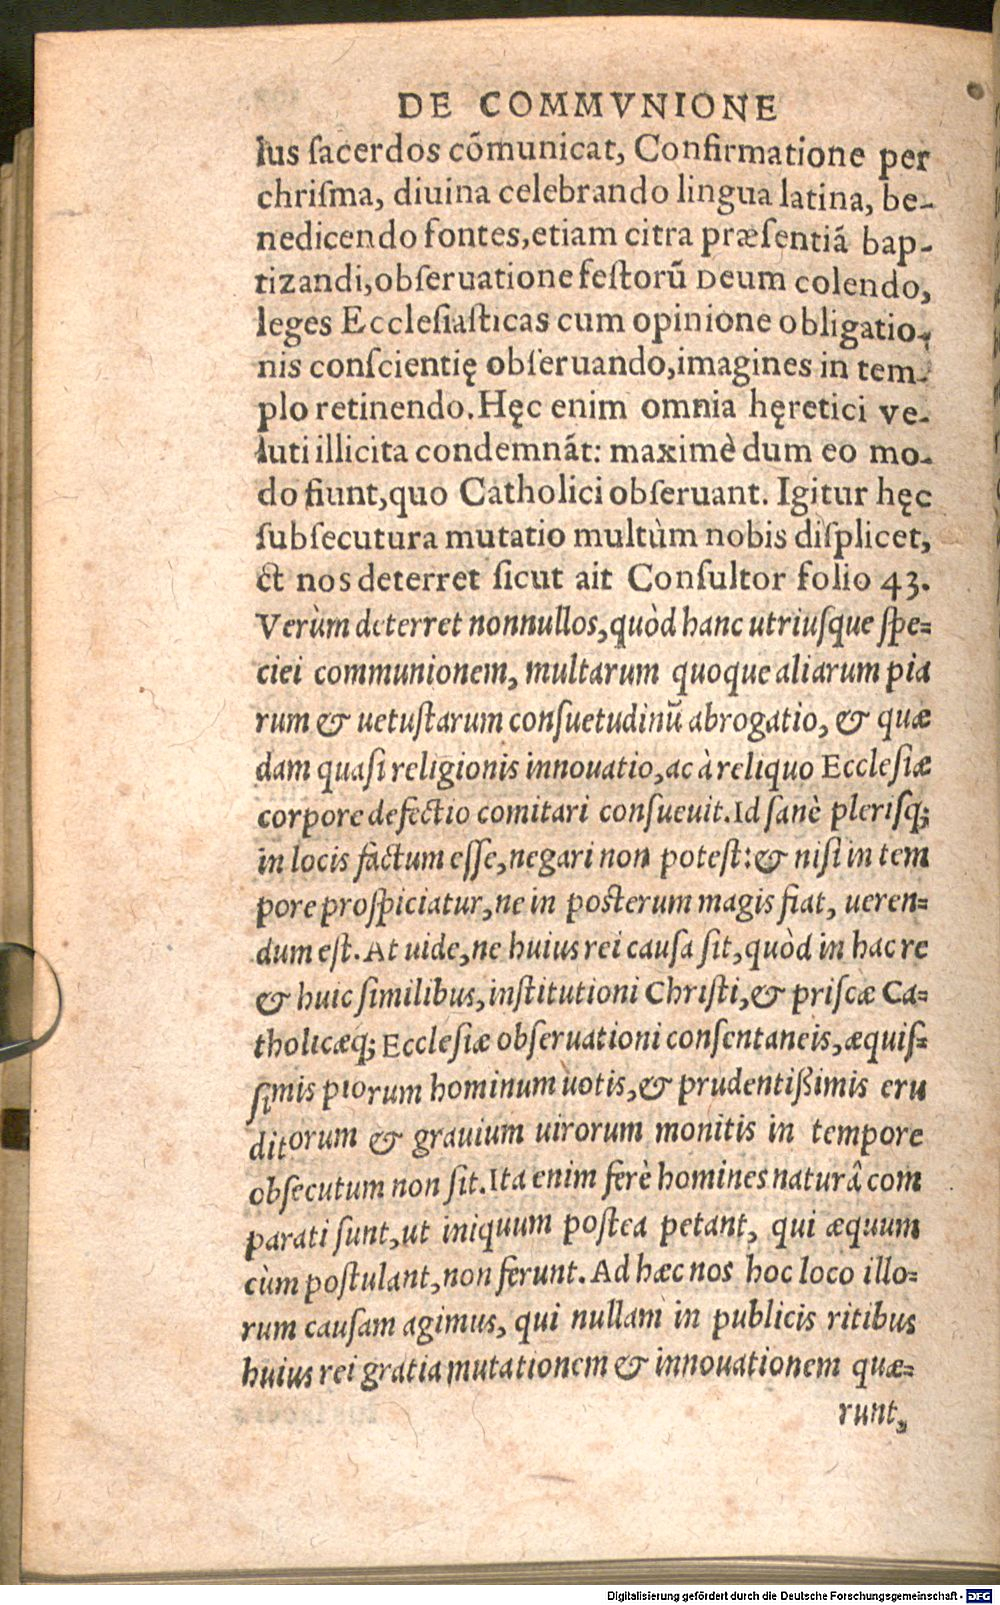 DE COMMVNIONE
lus ſacerdos cõmunicat, Confirmatione per
chriſma, diuina celebrando lingua latina, be-
nedicendo fontes, etiam citra præſentiã bap-
tizandi, obſeruatione feſtorũ Deum colendo,
leges Eccleſiaſticas cum opinione obligatio-
nis conſcientię obſeruando, imagines in tem-
plo retinendo. Hęc enim omnia hęretici ve-
luti illicita condemnãt: maximè dum eo mo-
do fiunt, quo Catholici obſeruant. Igitur hęc
ſubſecutura mutatio multùm nobis diſplicet,
et nos deterret ſicut ait Conſultor folio 43.
Verùm deterret nonnullos, quòd hanc utriuſque ſpe=
ciei communionem, multarum quoque aliarum pia
rum & uetuſtarum conſuetudinũ abrogatio, & quæ
dam quaſi religionis innouatio, ac à reliquo Eccleſiæ
corpore defectio comitari conſueuit. Id ſanè pleriſq;
in locis factum eſſe, negari non poteſt: & niſi in tem
pore proſpiciatur, ne in poſterum magis fiat, ueren=
dum eſt. At uide, ne huius rei cauſa ſit, quòd in hac re
& huic ſimilibus, inſtitutioni Chriſti, & priſcæ Ca=
tholicæq; Eccleſiæ obſeruationi conſentaneis, æquiſ=
ſimis piorum hominum uotis, & prudentißimis eru
ditorum & grauium uirorum monitis in tempore
obſecutum non ſit. Ita enim ferè homines naturâ com
parati ſunt, ut iniquum poſtea petant, qui æquum
cùm poſtulant, non ferunt. Ad hæc nos hoc loco illo=
rum cauſam agimus, qui nullam in publicis ritibus
huius rei gratia mutationem & innouationem quæ=
runt,
Digitalisierung gefördert durch die Deutsche Forschungsgemeinschaft - DFG